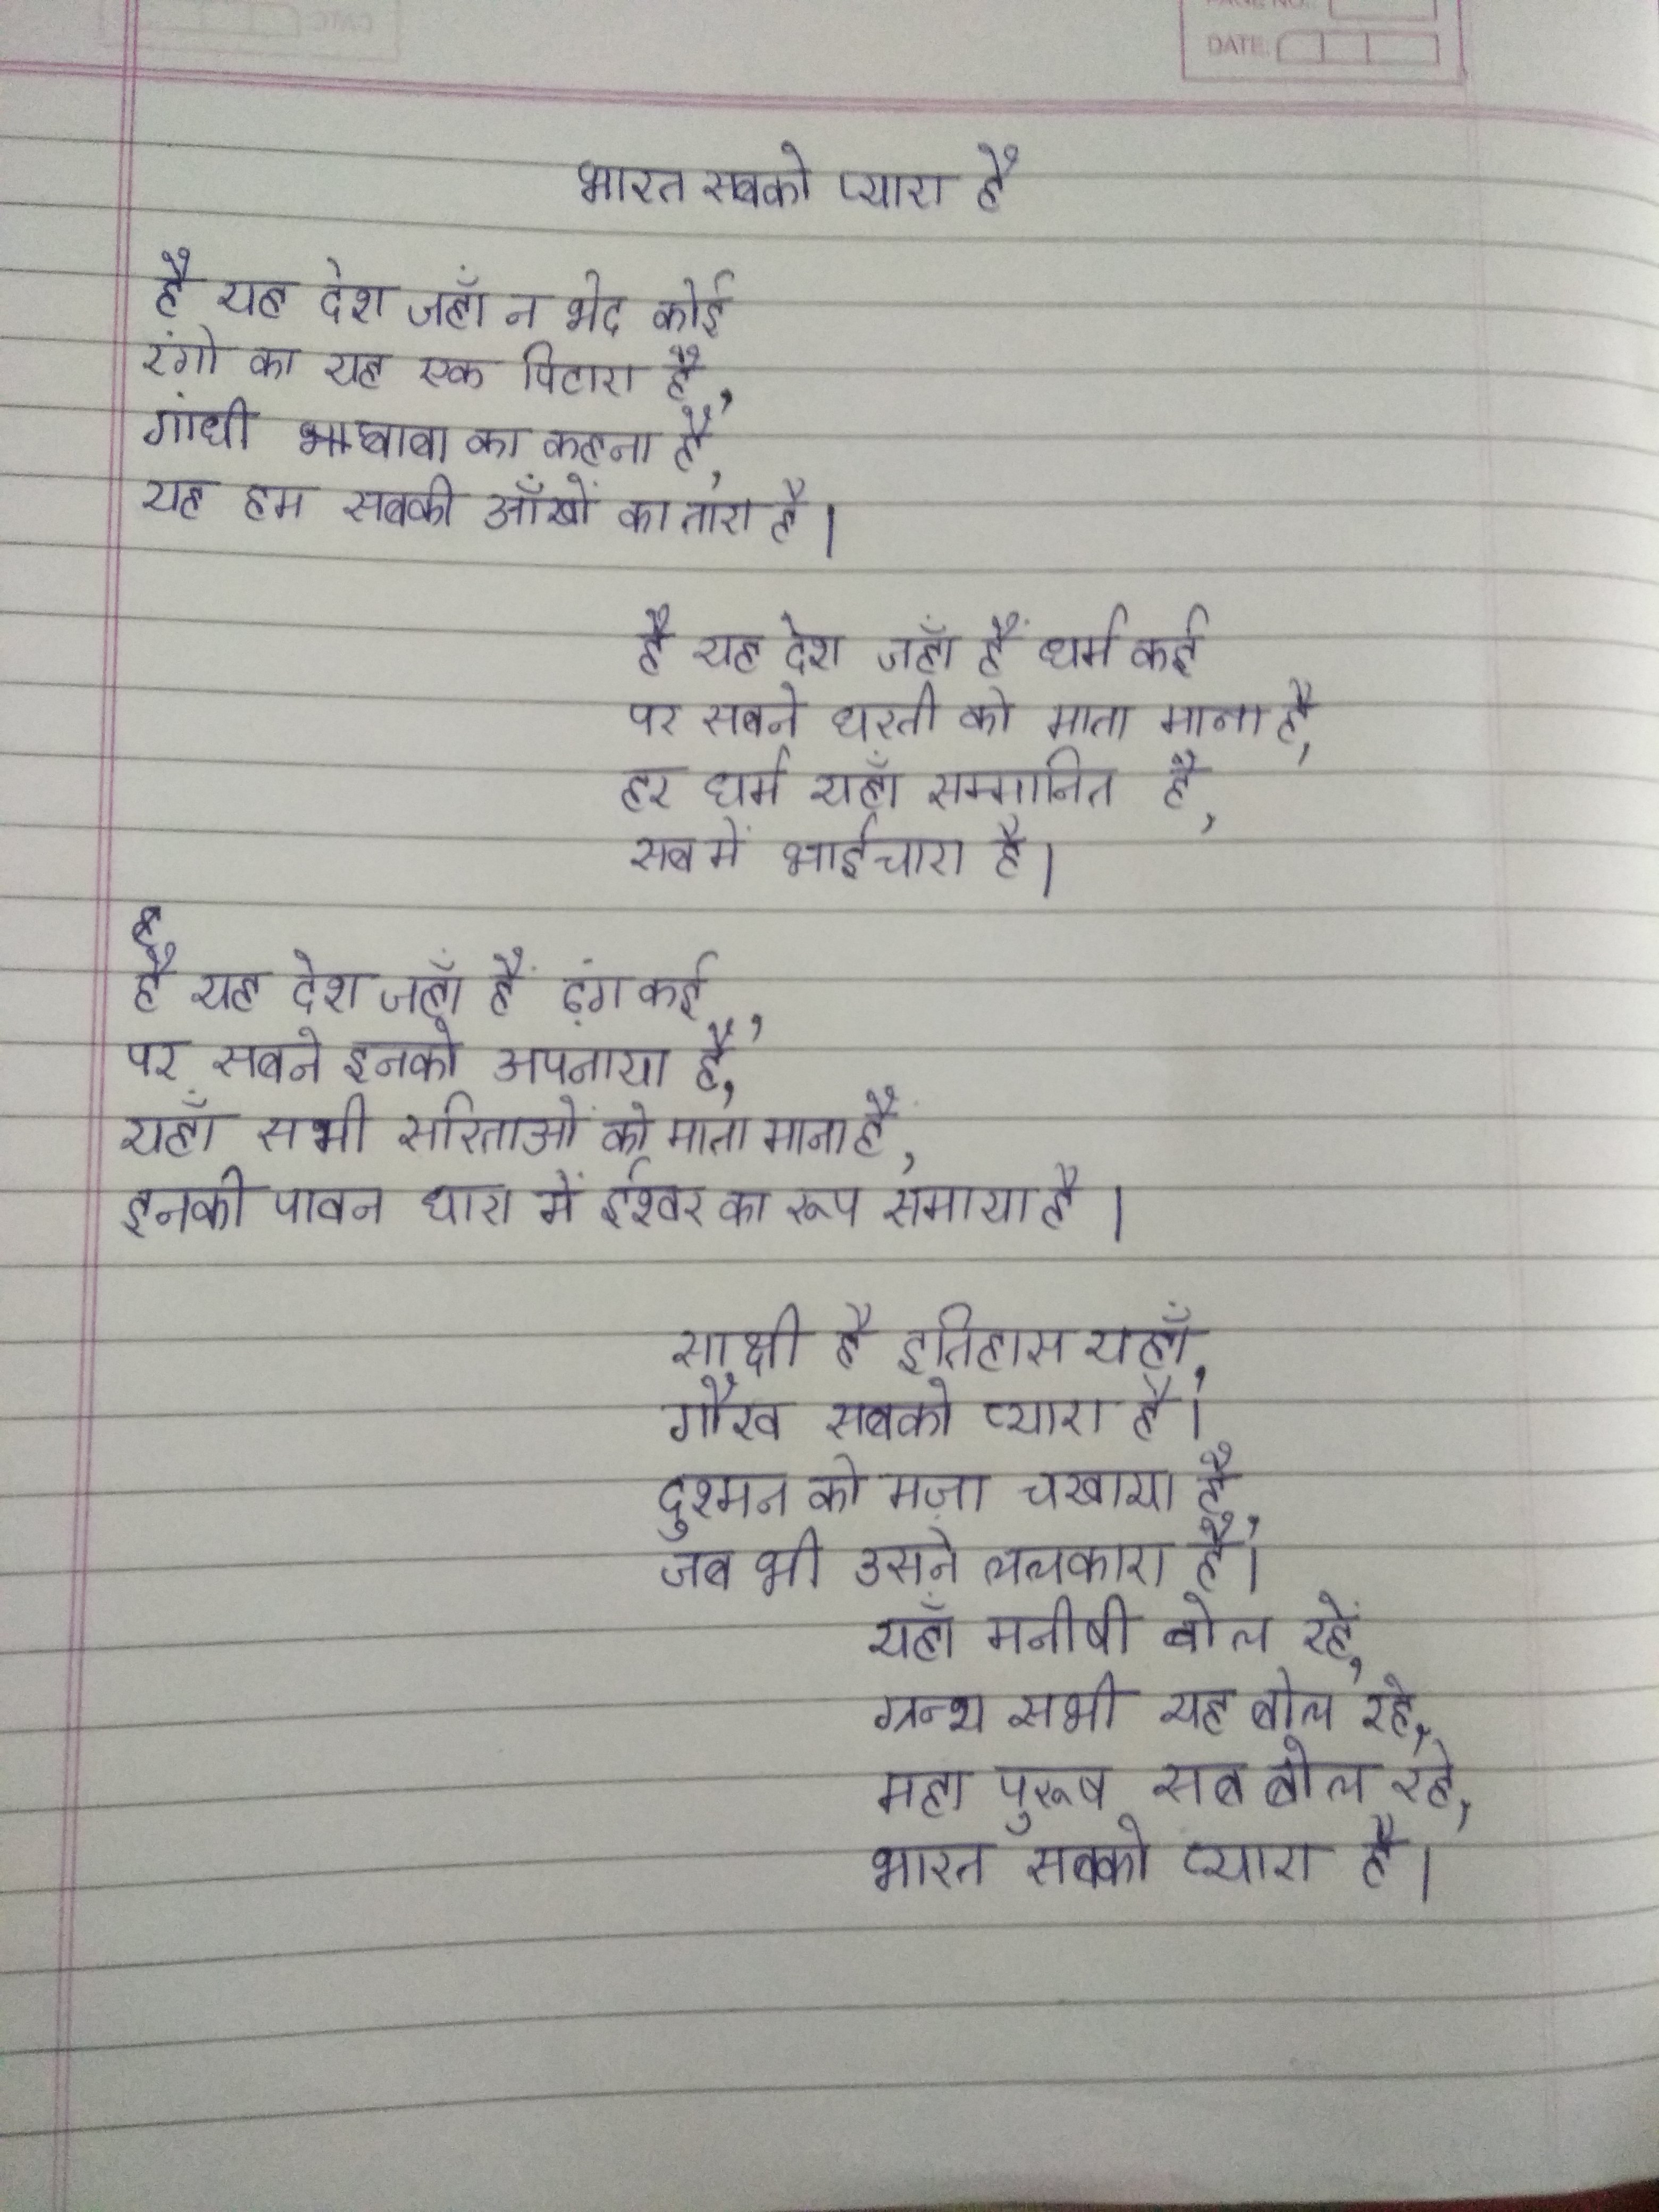 PAGE NO.:
DATE:
भारत सबको प्यारा है
है यह देश जहाँ न भेद कोई
रंगो का यह एक पिटारा है,
गांधी बाबा का कहना है,
यह हम सबकी आँखों का तारा है।
है यह देश जहाँ हैं धर्म कई
पर सबने धरती को माता माना है,
हर धर्म यहाँ सम्मानित है,
सब में भाईचारा है।
है यह देश जहाँ हैं ढ़ंग कई,
पर सबने इनको अपनाया है,
यहाँ सभी सरिताओं को माता माना है,
इनकी पावन धारा में ईश्वर का रूप समाया है।
साक्षी है इतिहास यहाँ,
गौरव सबको प्यारा है।
दुश्मन को मज़ा चखाया है,
जब भी उसने ललकारा है।
यहाँ मनीषी बोल रहें,
ग्रन्थ सभी यह बोल रहे,
महा पुरूष सब बोल रहे,
भारत सबको प्यारा है।